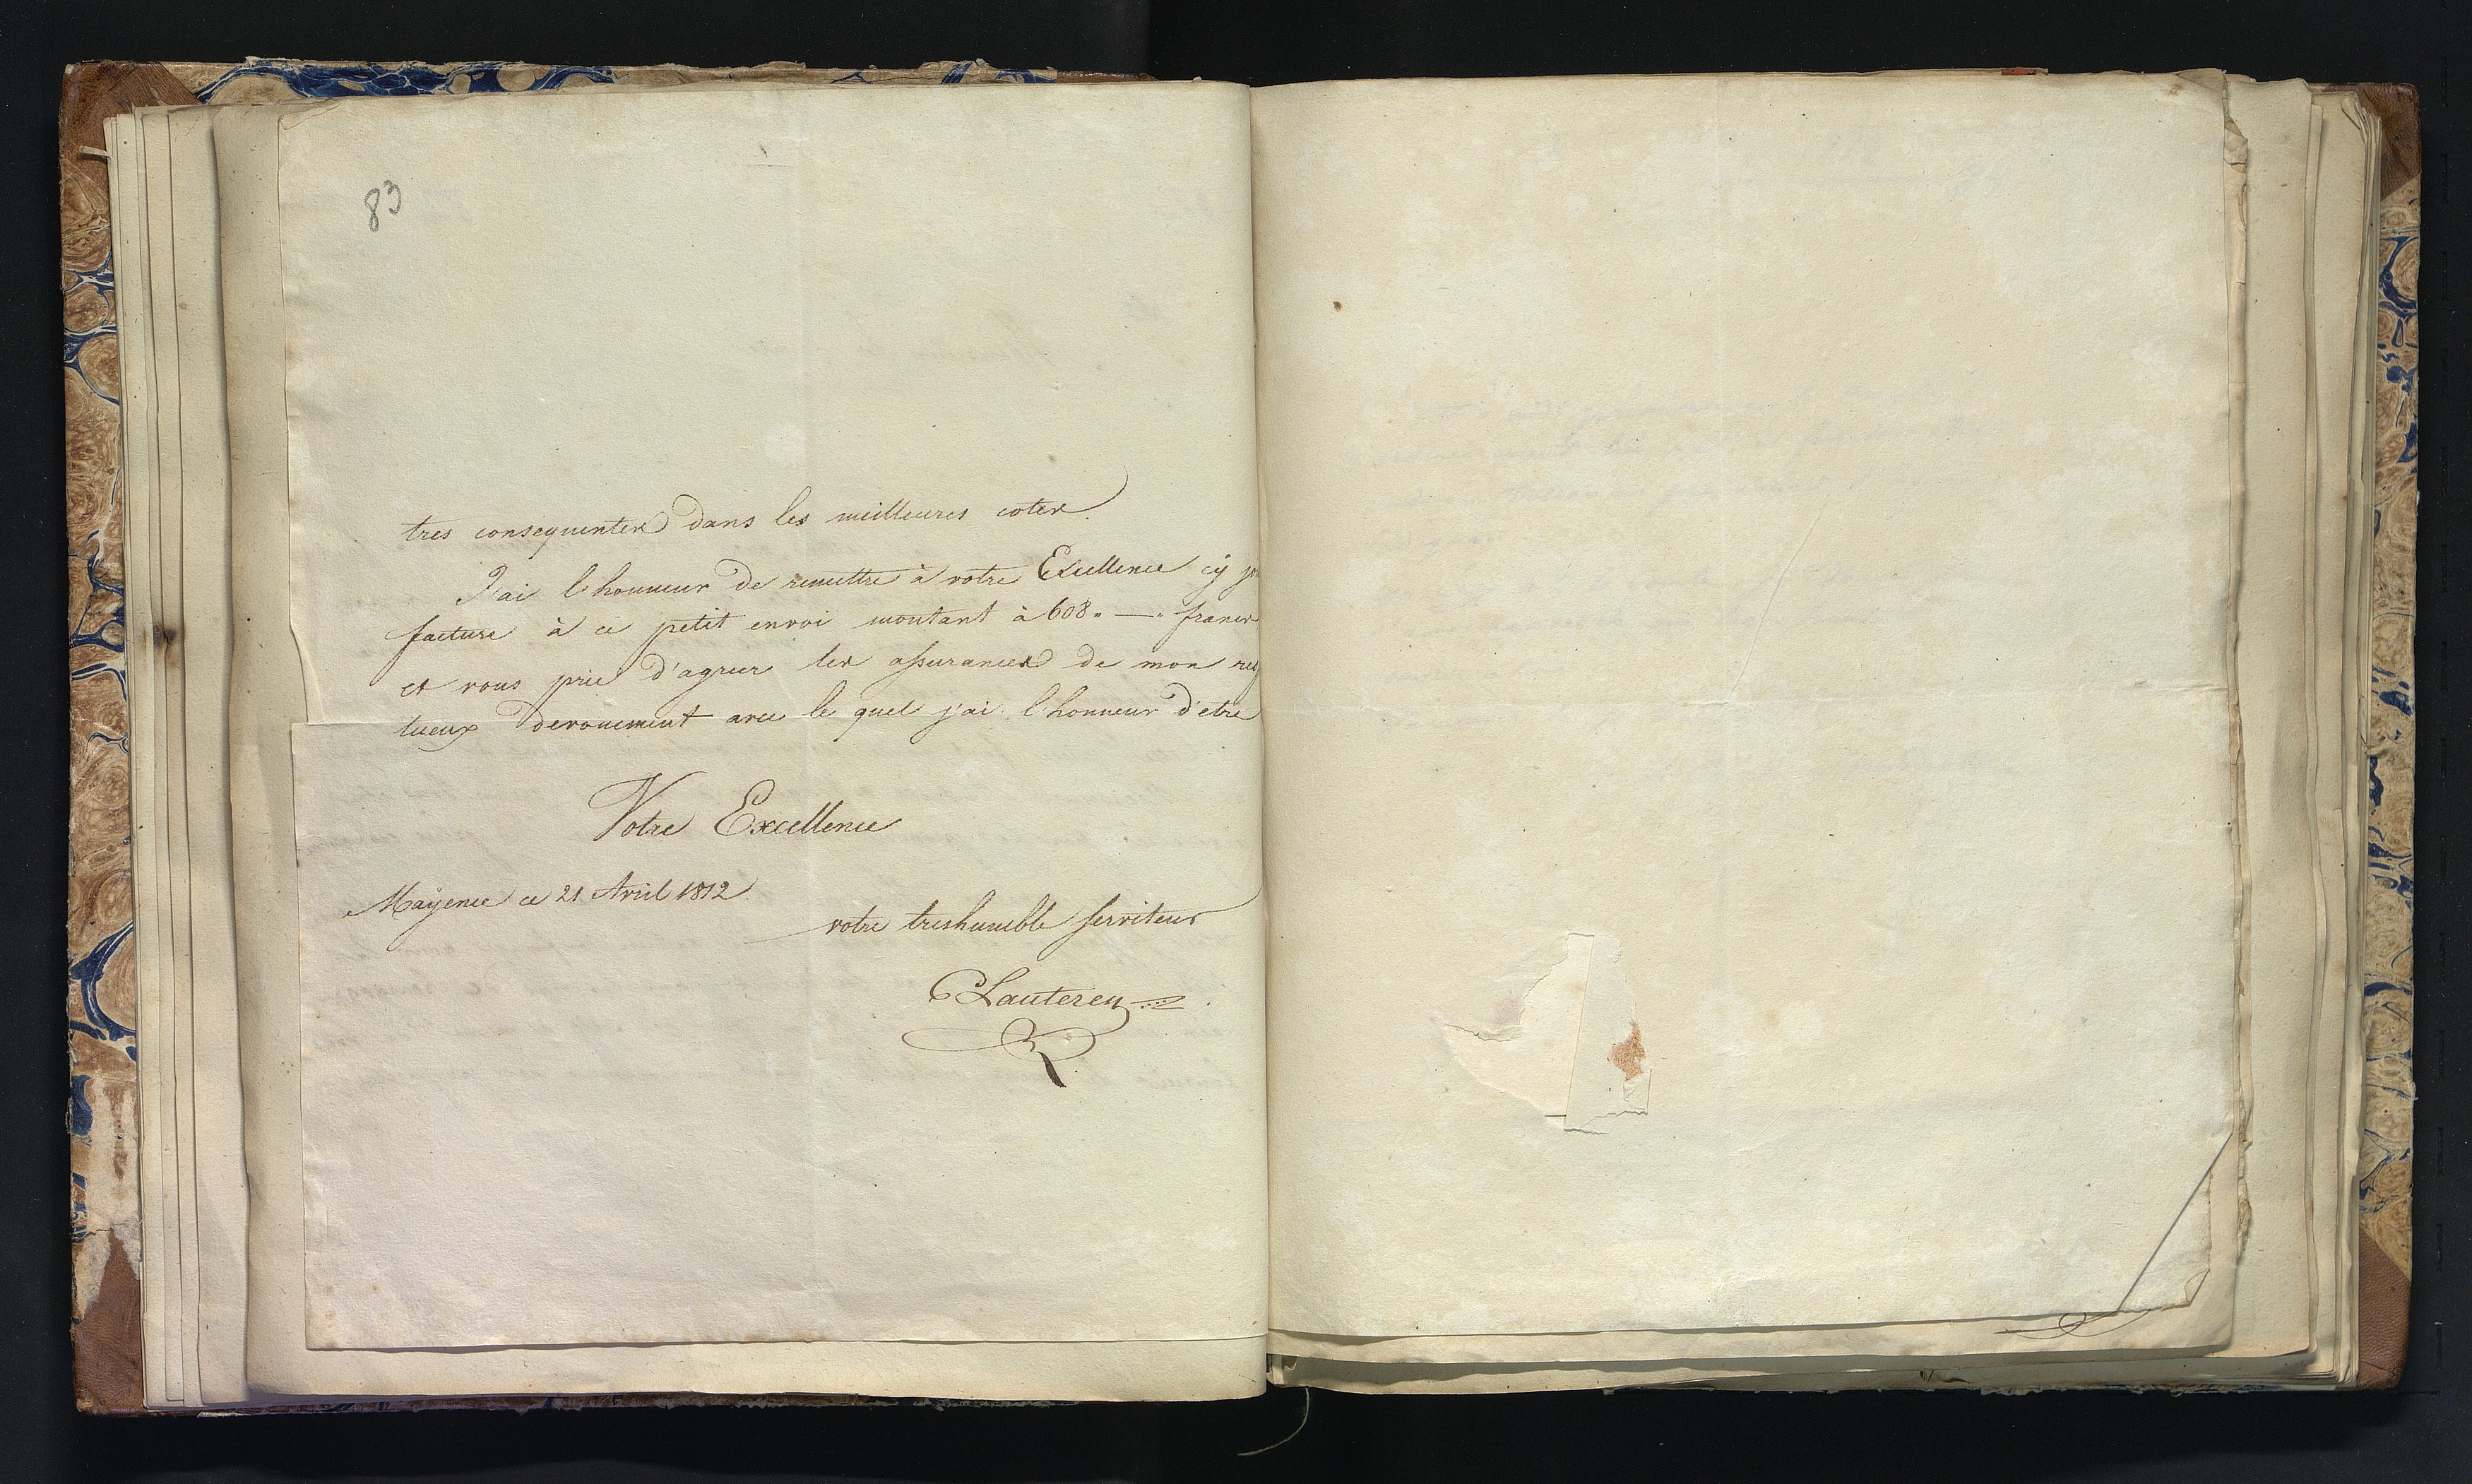 83
tres consequentes dans les meilleures cotes.
J'ai l'honneur de remettre à votre Excellence cy jo
facture à ce petit envoi montant à 608 „ — „ francs
et vous prie d'agreer les assurances de mon resp
tueux devouement avec le quel j'ai l'honneur d'etre
Votre Excellence
Mayence ce 21 Avril 1812
votre treshumble serviteur
CLauteren